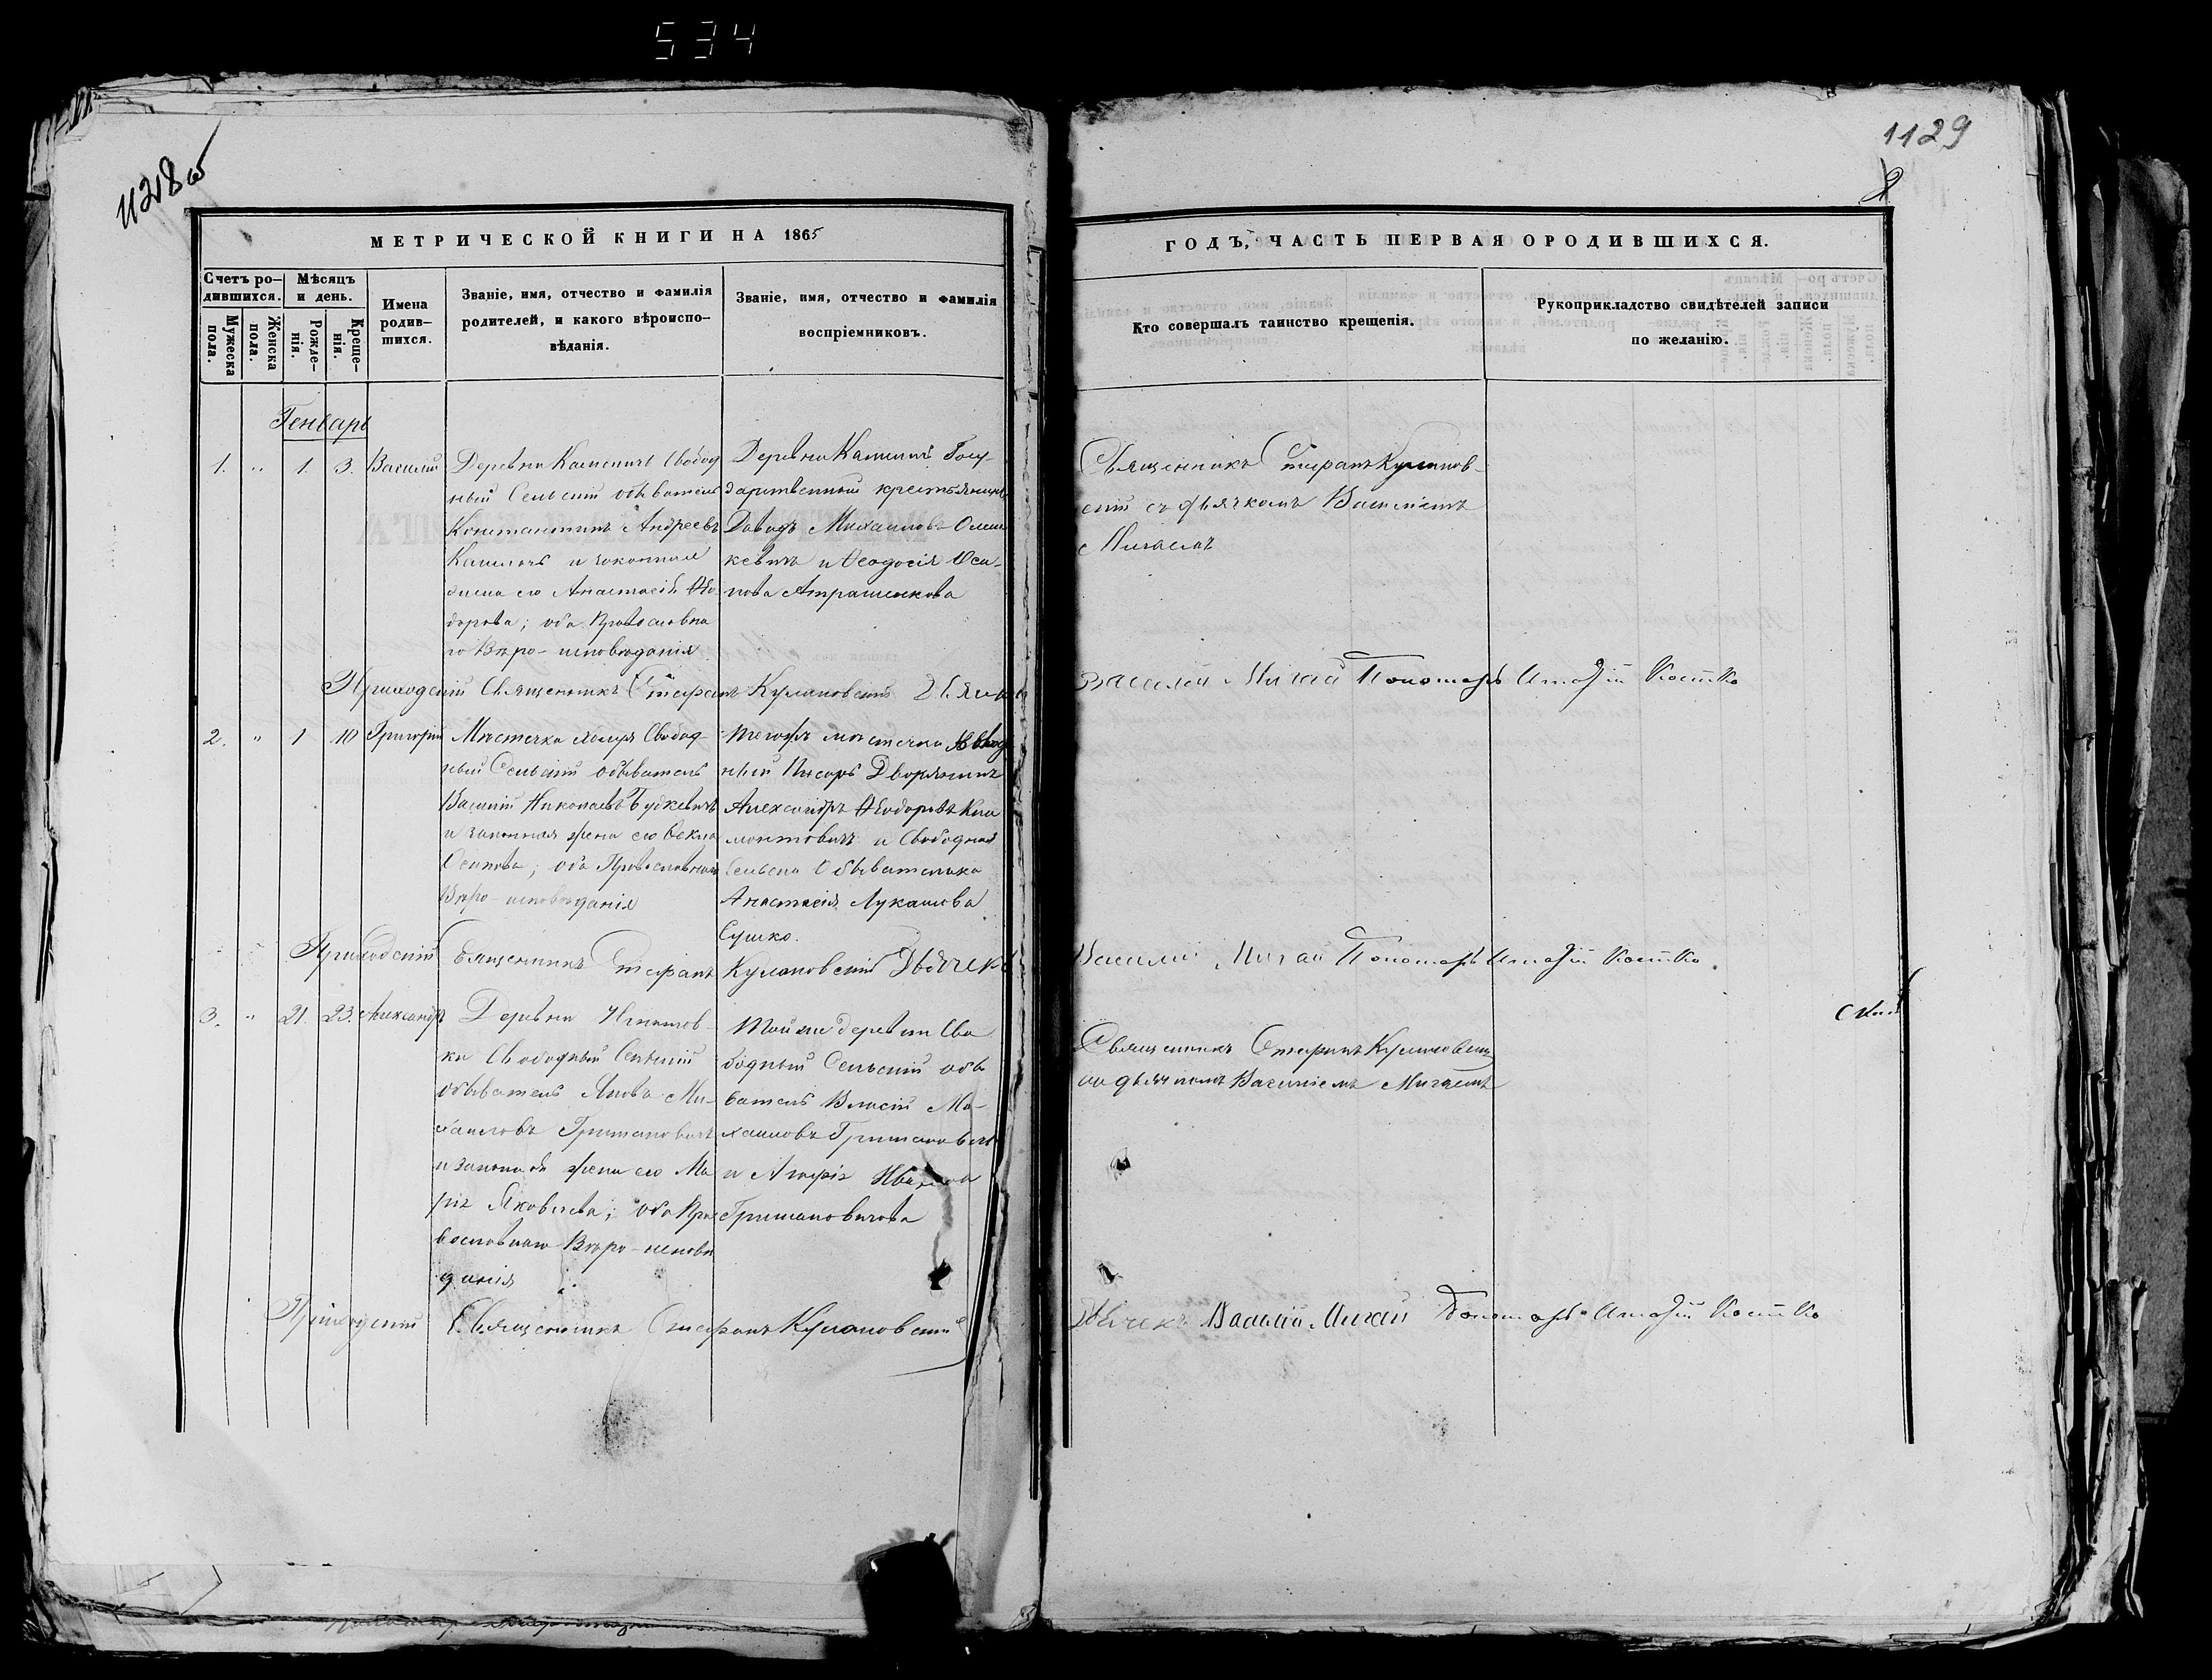 534
1128 об
1129
2
МЕТРИЧЕСКОЙ КНИГИ НА 1865
ГОДЪ, ЧАСТЬ ПЕРВАЯ О РОДИВШИХСЯ.
Счетъ ро-
дившихся.
Мѣсяцъ
и день.
Мужеска
пола.
Женска
пола.
Рожде-
нія.
Креще-
нія.
Имена
родив-
шихся.
Званіе, имя, отчество и фамилія
родителей, и какого вѣроиспо-
вѣданія.
Званіе, имя, отчество и фамилія
воспріемниковъ.
Кто совершалъ таинство крещенія.
Рукоприкладство свидѣтелей записи
по желанію.
Генварь
1. " 1. 3. Василій
Деревни Свобод
ный Сельскій обыватель
Константинъ Андреевъ
и законная
жена его Анастасія Ѳео-
дорова; оба Православна
го Вѣро-исповѣданія
Деревни Госу-
дарственный крестьянинъ
Давидъ Михаиловъ
и Ѳеодосія Оси-
пова Атрашенкова
Священникъ Стефанъ Кулинов-
скій съ дьячкомъ Василіемъ
Мигаемъ
Приходскій Священникъ Стефанъ Кулановскій Дьячекъ
Василій Мигай Пономарь Костко
2. " 1 10 Григорій
Мѣстечка Свобод-
ный Сельскій обыватель
Василій Николаевъ Будкевичъ
и законная жена его Ѳекла
Осипова; оба Православнаго
Вѣро-исповѣданія
Тогожъ мѣстечка
Писарь Дворянинъ
Александръ Ѳеодоровъ Кли
монтовичъ и Свободная
Сельска Обывателька
Анастасія Лукашова
Сушко.
Приходскій Священникъ Стефанъ Кулановскій Дьячекъ
Василій Мигай Пономарь Костко
3. " 21. 23. Александръ
Деревни Игнатов-
ки Свободный Сельскій
обыватель Ми-
хаиловъ Гришановичъ
и законная жена его Ма
рія Яковлева; оба Пра
вославнаго Вѣро-исповѣ
данія
Той же деревни Сво
бодный Сельскій обы
ватель Ми-
хаиловъ Гришановичъ
и Иванова
Гришановичова
Священникъ Стефанъ Кулановскій
съ дьячкомъ Василіемъ Мигаемъ
Приходскій Священникъ Стефанъ Кулановскій
Дьячекъ Василій Мигай Пономарь Костко